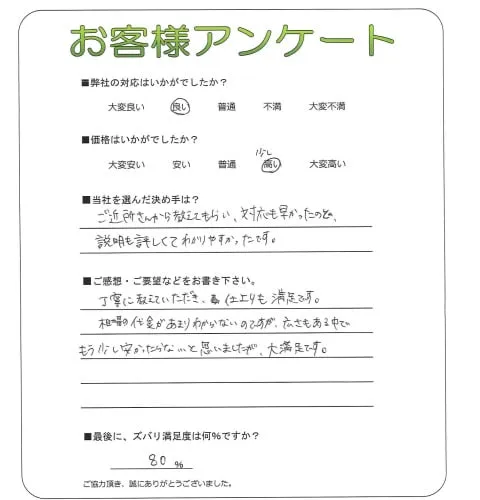 お客様アンケート
■弊社の対応はいかがでしたか?
大変良い 良い 普通 不満 大変不満
■価格はいかがでしたか?
少し
大変安い 安い 普通 高い 大変高い
■当社を選んだ決め手は?
ご近所さんから教えてもらい、対応も早かったのと、
説明も詳しくてわかりやすかったです。
■ご感想・ご要望などをお書き下さい。
丁寧に教えていただき、仕上りも満足です。
相場の代金があまりわからないのですが、広さもある中で
もう少し安かったらなぁと思いましたが、大満足です。
■最後に、ズバリ満足度は何%ですか?
80 %
ご協力頂き、誠にありがとうございました。